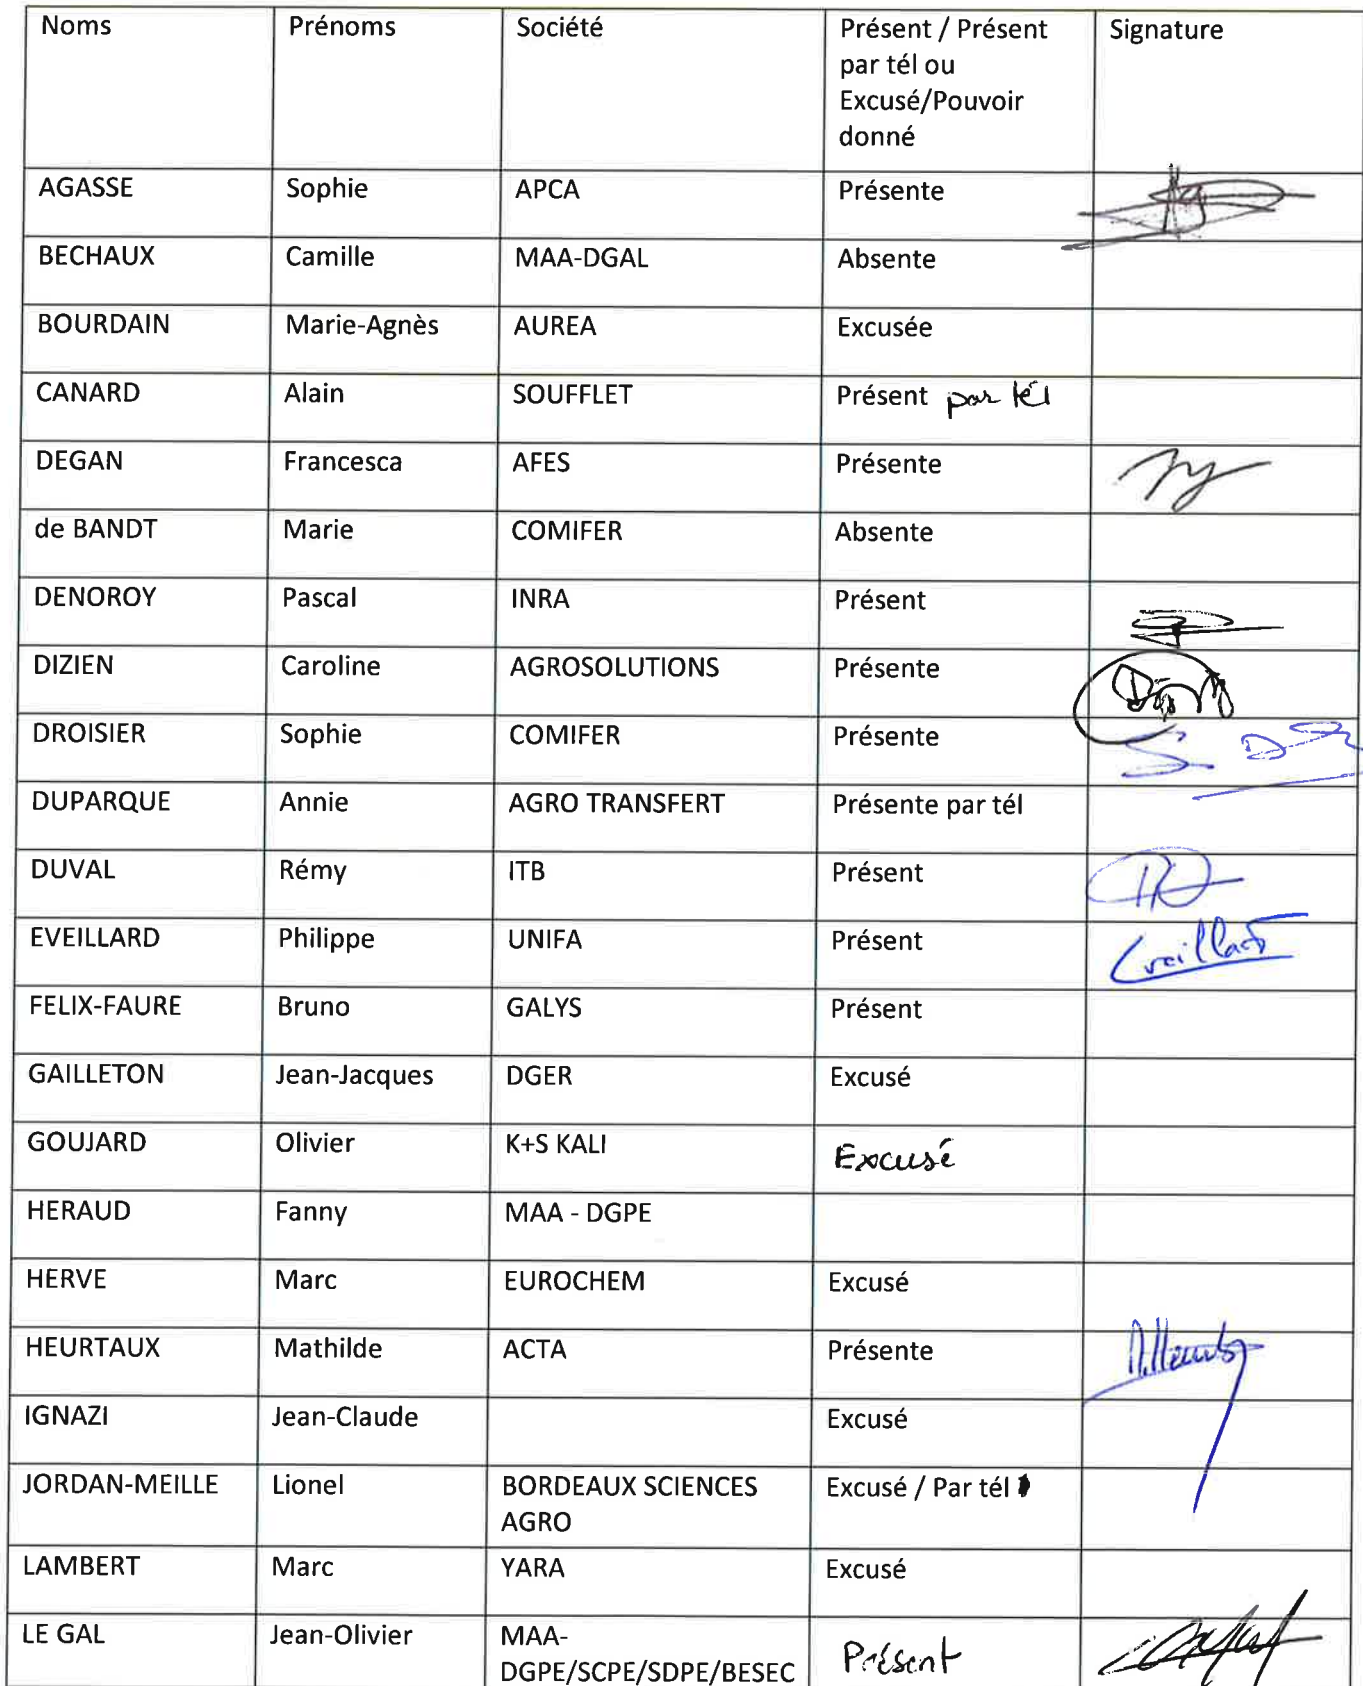 Noms Prénoms Société Présent / Présent Signature
par tél ou
Excusé/Pouvoir
donné
AGASSE Sophie APCA Présente
BECHAUX Camille MAA-DGAL Absente
BOURDAIN Marie-Agnès AUREA Excusée
CANARD Alain SOUFFLET Présent par tél
DEGAN Francesca AFES Présente
de BANDT Marie COMIFER Absente
DENOROY Pascal INRA Présent
DIZIEN Caroline AGROSOLUTIONS Présente
DROISIER Sophie COMIFER Présente
DUPARQUE Annie AGRO TRANSFERT Présente par tél
DUVAL Rémy ITB Présent
EVEILLARD Philippe UNIFA Présent
FELIX-FAURE Bruno GALYS Présent
GAILLETON Jean-Jacques DGER Excusé
GOUJARD Olivier K+S KALI Excusé
HERAUD Fanny MAA - DGPE
HERVE Marc EUROCHEM Excusé
HEURTAUX Mathilde ACTA Présente
IGNAZI Jean-Claude Excusé
JORDAN-MEILLE Lionel BORDEAUX SCIENCES Excusé / Par tél
AGRO
LAMBERT Marc YARA Excusé
LE GAL Jean-Olivier MAA- Présent
DGPE/SCPE/SDPE/BESEC